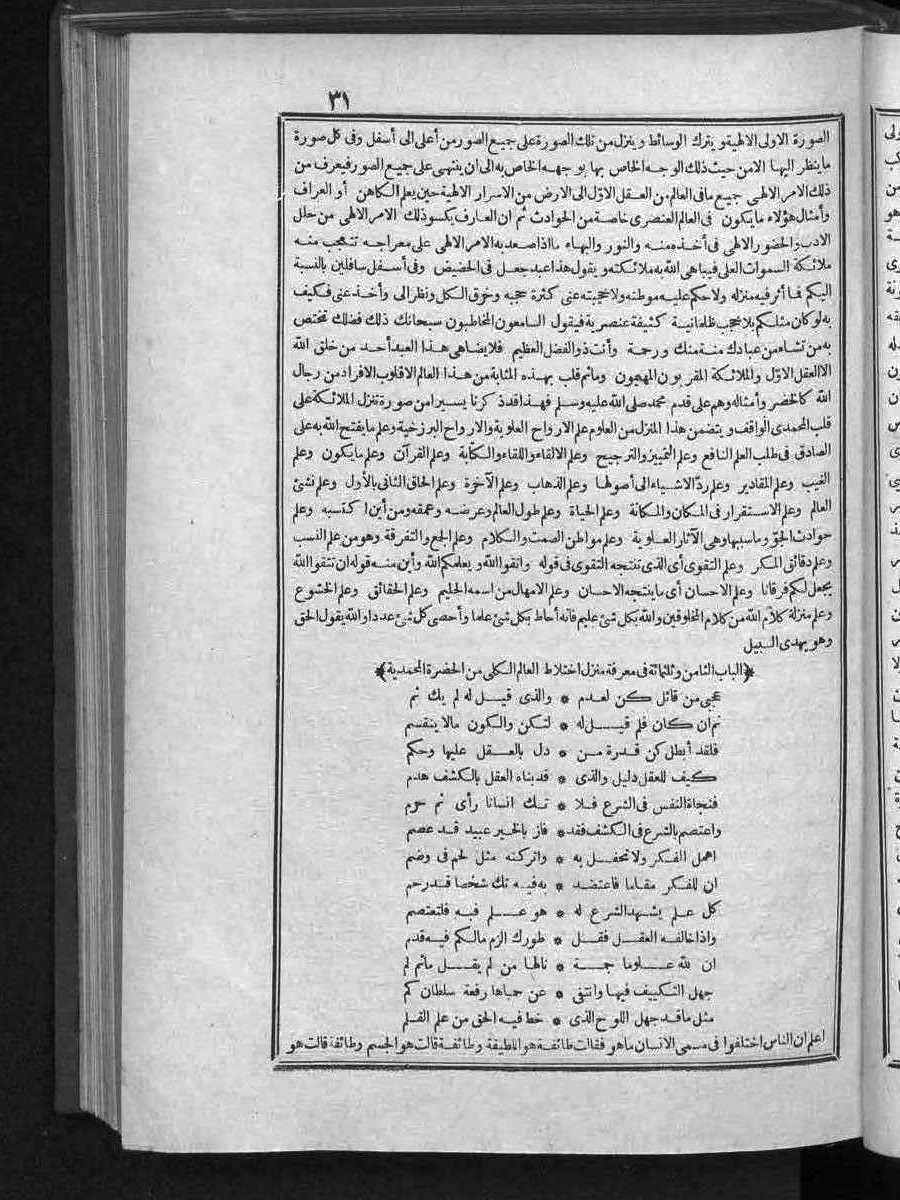 ٣١
الصورة الاولى الالهية ويترك الوسائط وينزل من تلك الصورة على جميع الصور من أعلى الى أسفل وفى كل صورة
ما ينظر اليها الامن حيث ذلك الوجه الخاص بها بوجهه الخاص به الى ان ينتهى على جميع الصور فيعرف من
ذلك الامر الالهى جميع ما فى العالم من العقل الاول الى الارض من الاسرار الالهية حين يعلم الكاهن أو العراف
وأمثال هؤلاء ما يكون فى العالم العنصرى خاصة من الحوادث ثم ان العارف يكسو ذلك الامر الالهى من حلل
الادب والحضور الالهى فى أخذه منه والنور والبهاء ما اذا صعد به الامر الالهى على معراجه تتعجب منه
ملائكة السموات العلى فيباهى الله به ملائكته ويقول هذا عبد جعل فى الحضيض وفى أسفل سافلين بالنسبة
اليكم فما أثر فيه منزله ولا حكم عليه موطنه ولا حجبته عنى كثرة حجبه وخرق الكل ونظر الى وأخذ عنى فكيف
به لو كان مثلكم بلا حجب ظلمانية كثيفة عنصرية فيقول السامعون المخاطبون سبحانك ذلك فضلك تختص
به من تشاء من عبادك منة منك ورحمة وأنت ذو الفضل العظيم فلا يضاهى هذا العبد أحد من خلق الله
الا العقل الاول والملائكة المقربون المهيمون وما ثم قلب بهذه المثابة من هذا العالم الا قلوب الافراد من رجال
الله كالخضر وأمثاله وهم على قدم محمد صلى الله عليه وسلم فهذا قد ذكرنا يسيرا من صورة تنزل الملائكة على
قلب المحمدى الواقف ويتضمن هذا المنزل من العلوم علم الارواح العلوية والارواح البرزخية وعلم ما يفتح الله به على
الصادق فى طلب العلم النافع وعلم التمييز والترجيح وعلم الالقاء واللقاء والكتابة وعلم القرآن وعلم ما يكون وعلم
الغيب وعلم المقادير وعلم رد الاشياء الى أصولها وعلم الذهاب وعلم الآخرة وعلم الحاق الثانى بالأول وعلم نشئ
العالم وعلم الاستقرار فى المكان والمكانة وعلم الحياة وعلم طول العالم وعرضه وعمقه ومن أين اكتسبه وعلم
حوادث الجو وما سببها وهى الآثار العلوية وعلم مواطن الصمت والكلام وعلم الجمع والتفرقة وهو من علم النسب
وعلم دقائق المكر وعلم التقوى أى الذى تنتجه التقوى فى قوله واتقوا الله ويعلمكم الله وأين منه قوله ان تتقوا الله
يجعل لكم فرقانا وعلم الاحسان أى ما ينتجه الاحسان وعلم الامهال من اسمه الحليم وعلم الحقائق وعلم الخشوع
وعلم منزلة كلام الله من كلام المخلوقين والله بكل شئ عليم فانه أحاط بكل شئ علما وأحصى كل شئ عددا والله يقول الحق
وهو يهدى السبيل
﴿الباب الثامن وثلثمائة فى معرفة منزل اختلاط العالم الكلى من الحضرة المحمدية﴾
عجبى من قائل كن لعدم * والذى قيل له لم يك ثم
ثم ان كان فلم قيل له * لتكن والكون مالا ينقسم
فلقد أبطل كن قدرة من * دل بالعقل عليها وحكم
كيف للعقل دليل والذى * قد بناه العقل بالكشف هدم
فنجاة النفس فى الشرع فلا * تك انسانا رأى ثم حرم
واعتصم بالشرع فى الكشف فقد * فاز بالخير عبيد قد عصم
اهمل الفكر ولا تحفل به * واتركنه مثل لحم فى وضم
ان للفكر مقاما فاعتضد * به فيه تك شخصا قد رحم
كل علم يشهد الشرع له * هو علم فيه فلتعتصم
واذا خالفه العقل فقل * طورك الزم مالكم فيه قدم
ان لله علوما جمة * نالها من لم يقل ما ثم لم
جهل التكييف فيها وانتفى * عن حماها رفعة سلطان كم
مثل ما قد جهل اللوح الذى * خط فيه الحق من علم القلم
اعلم ان الناس اختلفوا فى مسمى الانسان ما هو فقالت طائفة هو اللطيفة وطائفة قالت هو الجسم وطائفة قالت هو